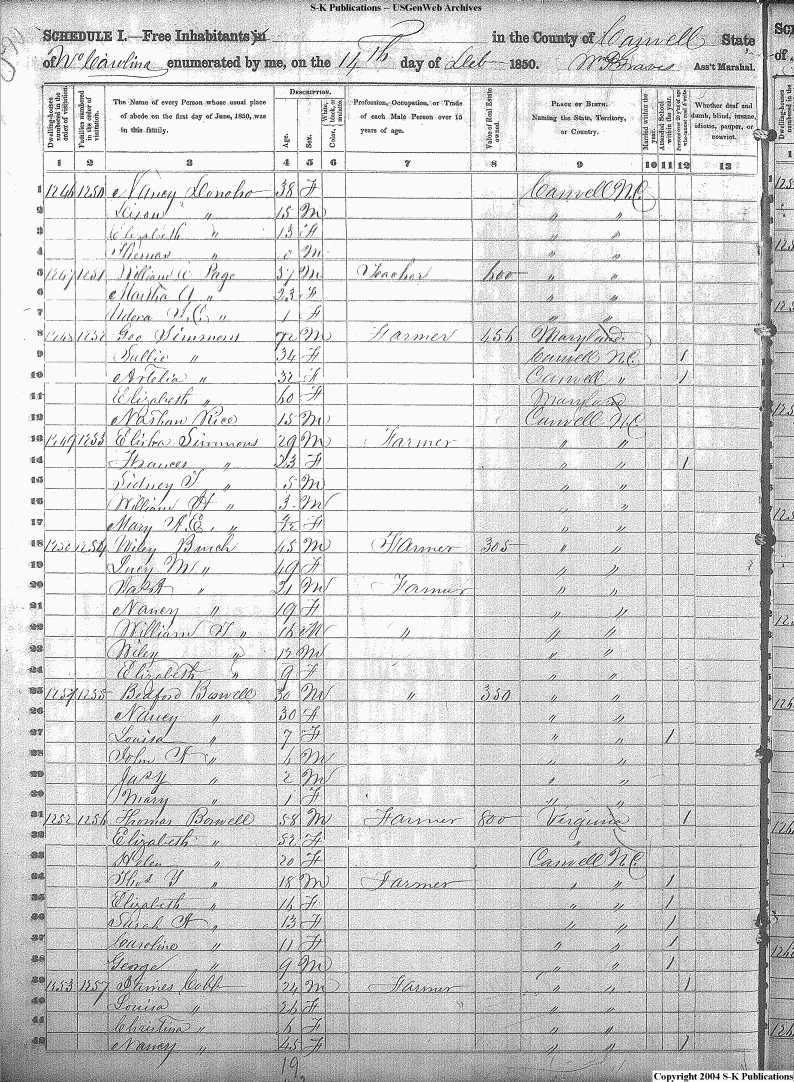 S-K Publications -- USGenWeb Archives
SCHEDULE I.—Free Inhabitants in in the County of Caswell State
of No Carolina enumerated by me, on the 14th day of Oct 1850. Ass't Marshal.
Dwelling-houses numbered in the order of visitation.
Families numbered in the order of visitation.
The Name of every Person whose usual place of abode on the first day of June, 1850, was in this family.
DESCRIPTION.
Age.
Sex.
Color, White, black, or mulatto.
Profession, Occupation, or Trade of each Male Person over 15 years of age.
Value of Real Estate owned.
PLACE OF BIRTH. Naming the State, Territory, or Country.
Married within the year.
Attended School within the year.
Whether deaf and dumb, blind, insane, idiotic, pauper, or convict.
1 2 3 4 5 6 7 8 9 10 11 12 13
1 1246 1250 Nancy Donoho 38 F Caswell N.C.
2 " 15 M " "
3 Elizabeth " 13 F " "
4 Thomas " M " "
5 1247 1251 William Page 37 M Teacher 600 " "
6 Martha A " 23 F " "
7 " 1 F " "
8 1248 1252 Geo Simmons 72 M Farmer 456 Maryland
9 Sallie " 34 F Caswell N.C. 1
10 Artelia " 32 F Caswell " 1
11 Elizabeth " 60 F Maryland
12 Nathan Rice 15 M Caswell N.C.
13 1249 1253 Elisha Simmons 29 M Farmer " "
14 Frances " 23 F " " 1
15 Sidney T " 5 M " "
16 William H " 3 M " "
17 Mary A.E. " F " "
18 1250 1254 Wiley Burch 45 M Farmer 305 " "
19 Lucy M " 49 F " "
20 " 21 M Farmer " "
21 Nancy " 19 F " "
22 William T " 16 M " " "
23 Wiley " 12 M " "
24 Elizabeth " 9 F " "
25 1251 1255 Bedford Boswell 30 M " 350 " "
26 Nancy " 30 F " "
27 Louisa " 7 F " " 1
28 John F " M " "
29 " 2 M " "
30 Mary " 1 F " "
31 1252 1256 Thomas Boswell 58 M Farmer 800 Virginia 1
32 Elizabeth " 52 F "
33 Helen " 20 F Caswell N.C.
34 Thos Y " 18 M Farmer " " 1
35 Elizabeth " 16 F " " 1
36 Sarah A " 13 F " " 1
37 Caroline " 11 F " " 1
38 George " 9 M " " 1
39 1253 1257 James Cobb 24 M Farmer " " 1
40 Louisa " 26 F " "
41 Christina " 6 F " "
42 Nancy " 45 F " " 1
19
Copyright 2004 S-K Publications